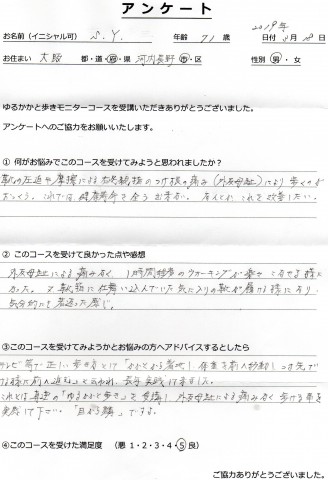 アンケート
お名前（イニシャル可） S.Y. 年齢 71 歳 2018年
日付 月 日
お住まい 大阪 都・道・府・県 河内長野 市・区 性別 男・女
ゆるかかと歩きモニターコースを受講いただきありがとうございました。
アンケートへのご協力をお願いいたします。
① 何がお悩みでこのコースを受けてみようと思われましたか？
靴の圧迫や摩擦による 痛み（外反母趾）により歩くのが
これでは健康寿命を 、なんとか、これを改善したい。
② このコースを受けて良かった点や感想
外反母趾による痛みなく、1時間程度のウォーキングが 様に
なった。又 に仕舞い込んでいたお気に入りの靴が履ける様になり、
気分的にも若返った感じ。
③このコースを受けてみようかとお悩みの方へアドバイスするとしたら
テレビ等で正しい歩き方として「かかとから着地し、体重を前へ移動し、つま先で
ける様に前へ進む」と云われ、長年実践して来ました。
これとは真逆の「ゆるかかと歩き」を受講し、外反母趾による痛みなく歩ける事を
実感して下さい。「目から鱗」ですよ。
④このコースを受けた満足度 （悪 1・2・3・4・5 良）
ご協力ありがとうございました。